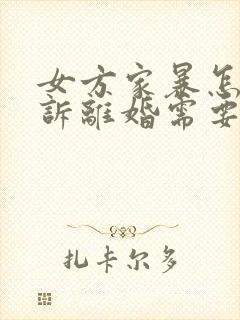 女方家暴怎
訴離婚需要
扎卡尔多